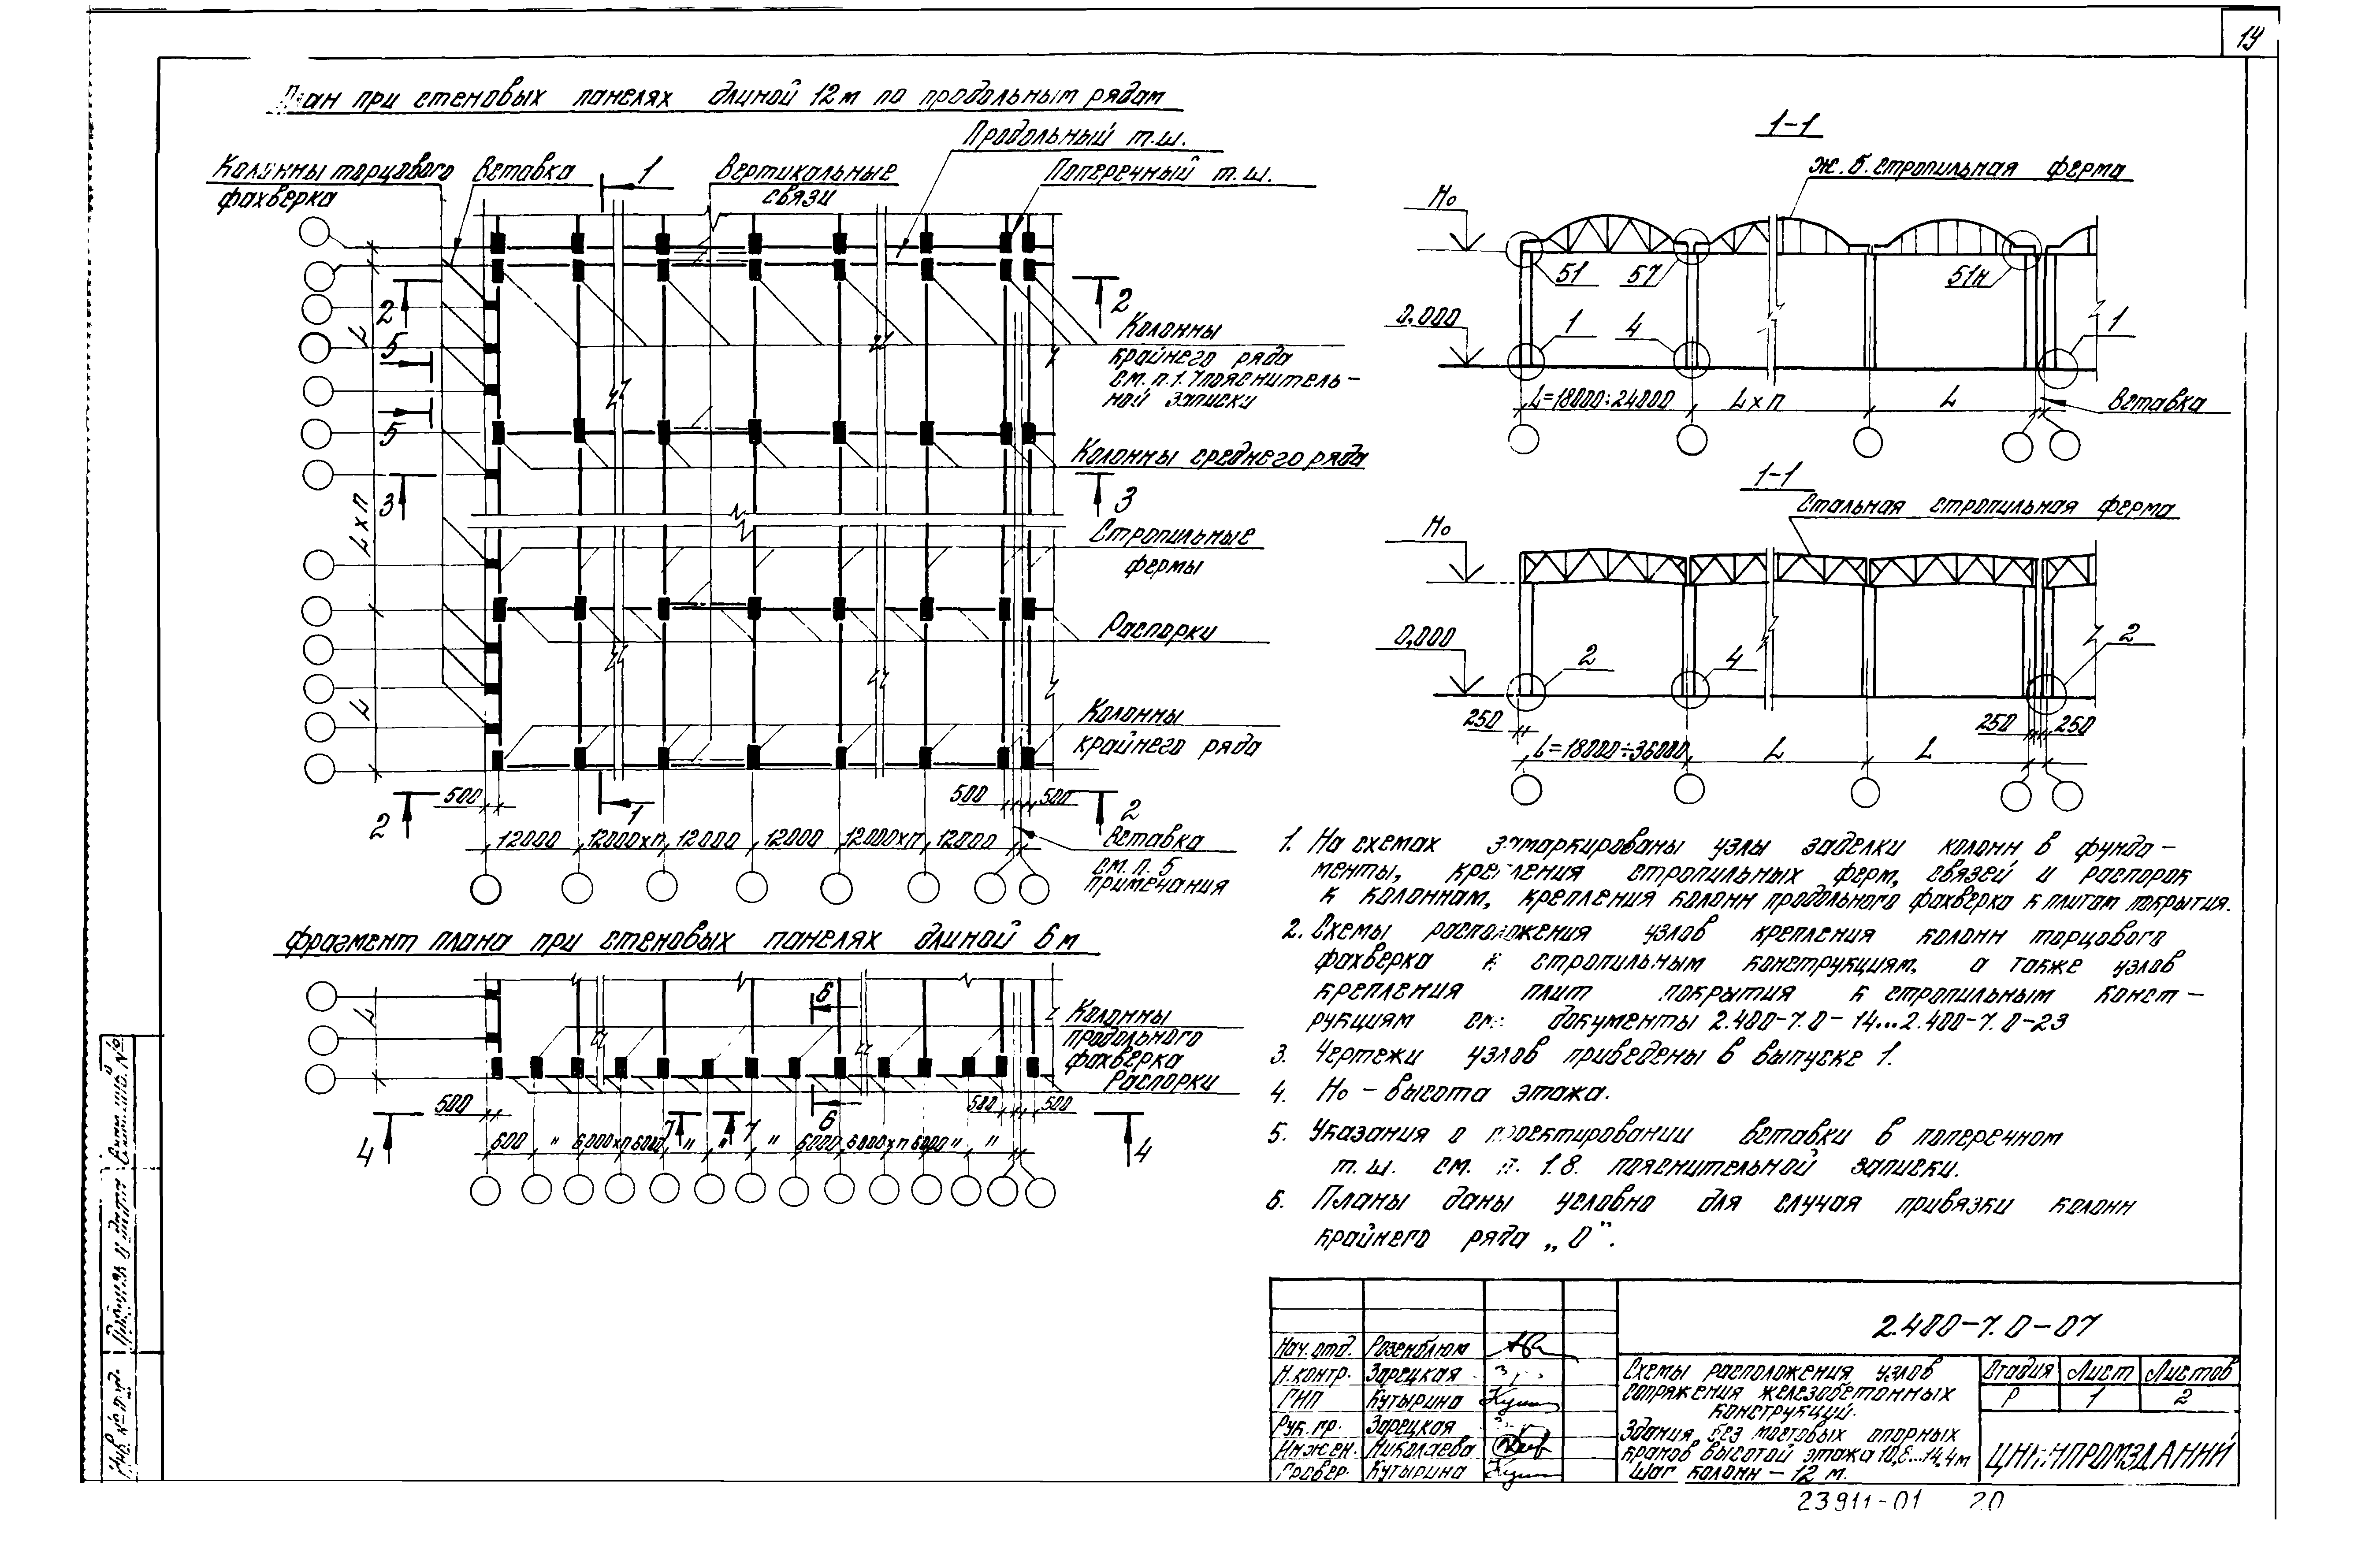 14
План при стеновых панелях длиной 12м по продольным рядам
Продольный т.ш.
Колонны торцового
фахверка
Вставка
1
Вертикальные
связи
Поперечный т.ш.
2
2
L
5
5
Колонны
крайнего ряда
см. п. 1.7 пояснитель-
ной записки
Колонны среднего ряда
3
3
L×n
Стропильные
фермы
Распорки
L
Колонны
крайнего ряда
500
1
500
500
2
2
12000
12000×n
12000
12000
12000×n
12000
Вставка
см. п. 5
примечания
Фрагмент плана при стеновых панелях длиной 6м
L
6
Колонны
продольного
фахверка
Распорки
500
6
500
500
4
7
7
4
600 " 6000×n 6000 " " " 6000 6000×n 6000 " "
1-1
Ж.б. стропильная ферма
Но
51
57
51н
0,000
1
4
1
L=18000÷24000
L×n
L
Вставка
1-1
Стальная стропильная ферма
Но
0,000
2
4
2
250
250
250
L=18000÷36000
L
L
1. На схемах замаркированы узлы заделки колонн в фунда-
менты, крепления стропильных ферм, связей и распорок
к колоннам, крепления колонн продольного фахверка к плитам покрытия.
2. Схемы расположения узлов крепления колонн торцового
фахверка к стропильным конструкциям, а также узлов
крепления плит покрытия к стропильным конст-
рукциям см. документы 2.400-7.0-14...2.400-7.0-23
3. Чертежи узлов приведены в выпуске 1.
4. Но - высота этажа.
5. Указания о проектировании вставки в поперечном
т.ш. см. п. 1.8. пояснительной записки.
6. Планы даны условно для случая привязки колонн
крайнего ряда „0".
2.400-7.0-07
Нач. отд. Розенблюм
Н.контр. Зарецкая
ГИП Кутырина
Рук. гр. Зарецкая
Инжен. Николаева
Провер. Кутырина
Схемы расположения узлов
сопряжения железобетонных
конструкций.
Здания без мостовых опорных
кранов высотой этажа 10,8...14,4м
Шаг колонн - 12 м.
Стадия Лист Листов
Р 1 2
ЦНИИПРОМЗДАНИЙ
23911-01 20
Инв. № подл.
Подпись и дата
Взам. инв. №